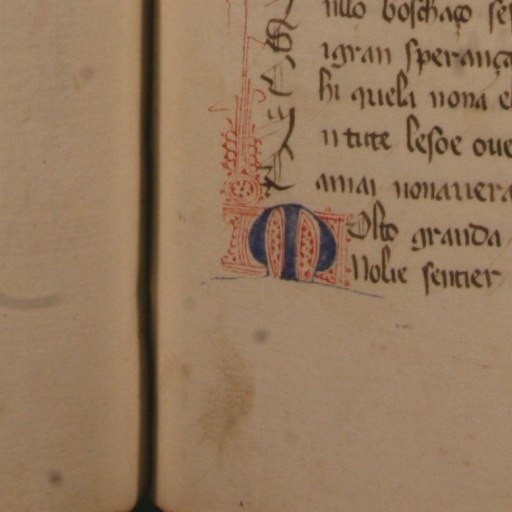 nullo boschaço ses
igran sperança
hi quela nona e
n tute lesoe oue
amai nonauera
MOlto granda
Nolie sentier